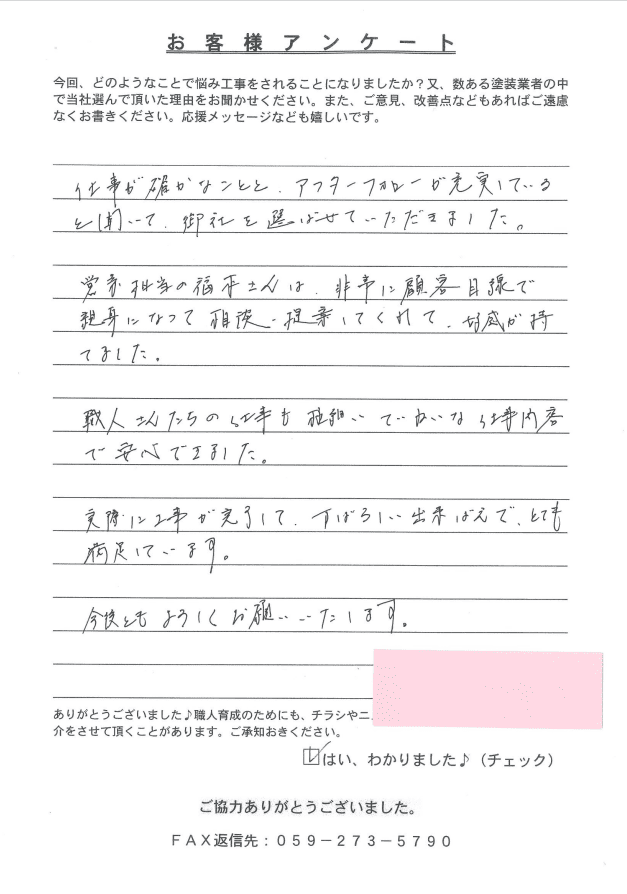 お客様アンケート
今回、どのようなことで悩み工事をされることになりましたか?又、数ある塗装業者の中
で当社選んで頂いた理由をお聞かせください。また、ご意見、改善点などもあればご遠慮
なくお書きください。応援メッセージなども嬉しいです。
仕事が確かなことと、アフターフォローが充実している
と聞いて、御社を選ばせていただきました。
営業担当の さんは、非常に顧客目線で
親身になって相談・提案してくれて、好感が持
てました。
職人さんたちの仕事も ていねいな仕事内容
で安心できました。
実際に工事が完了して、すばらしい出来ばえで、とても
満足しています。
今後ともよろしくお願いいたします。
ありがとうございました♪職人育成のためにも、チラシやニ
介をさせて頂くことがあります。ご承知おきください。
はい、わかりました♪(チェック)
ご協力ありがとうございました。
FAX返信先:059-273-5790